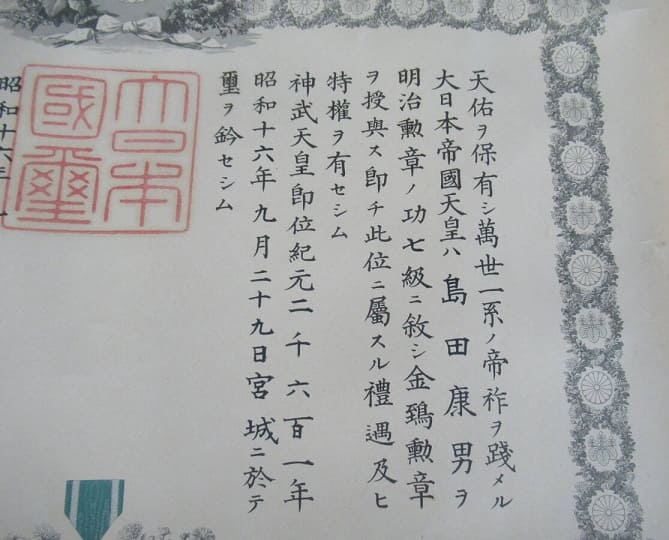 天佑ヲ保有シ萬世一系ノ帝祚ヲ踐メル
大日本帝國天皇ハ島田康男ヲ
明治勲章ノ功七級ニ敘シ金鵄勲章
ヲ授與ス即チ此位ニ屬スル禮遇及ヒ
特權ヲ有セシム
神武天皇即位紀元二千六百一年
昭和十六年九月二十九日宮城ニ於テ
璽ヲ鈐セシム
大日本國璽
昭和十六年